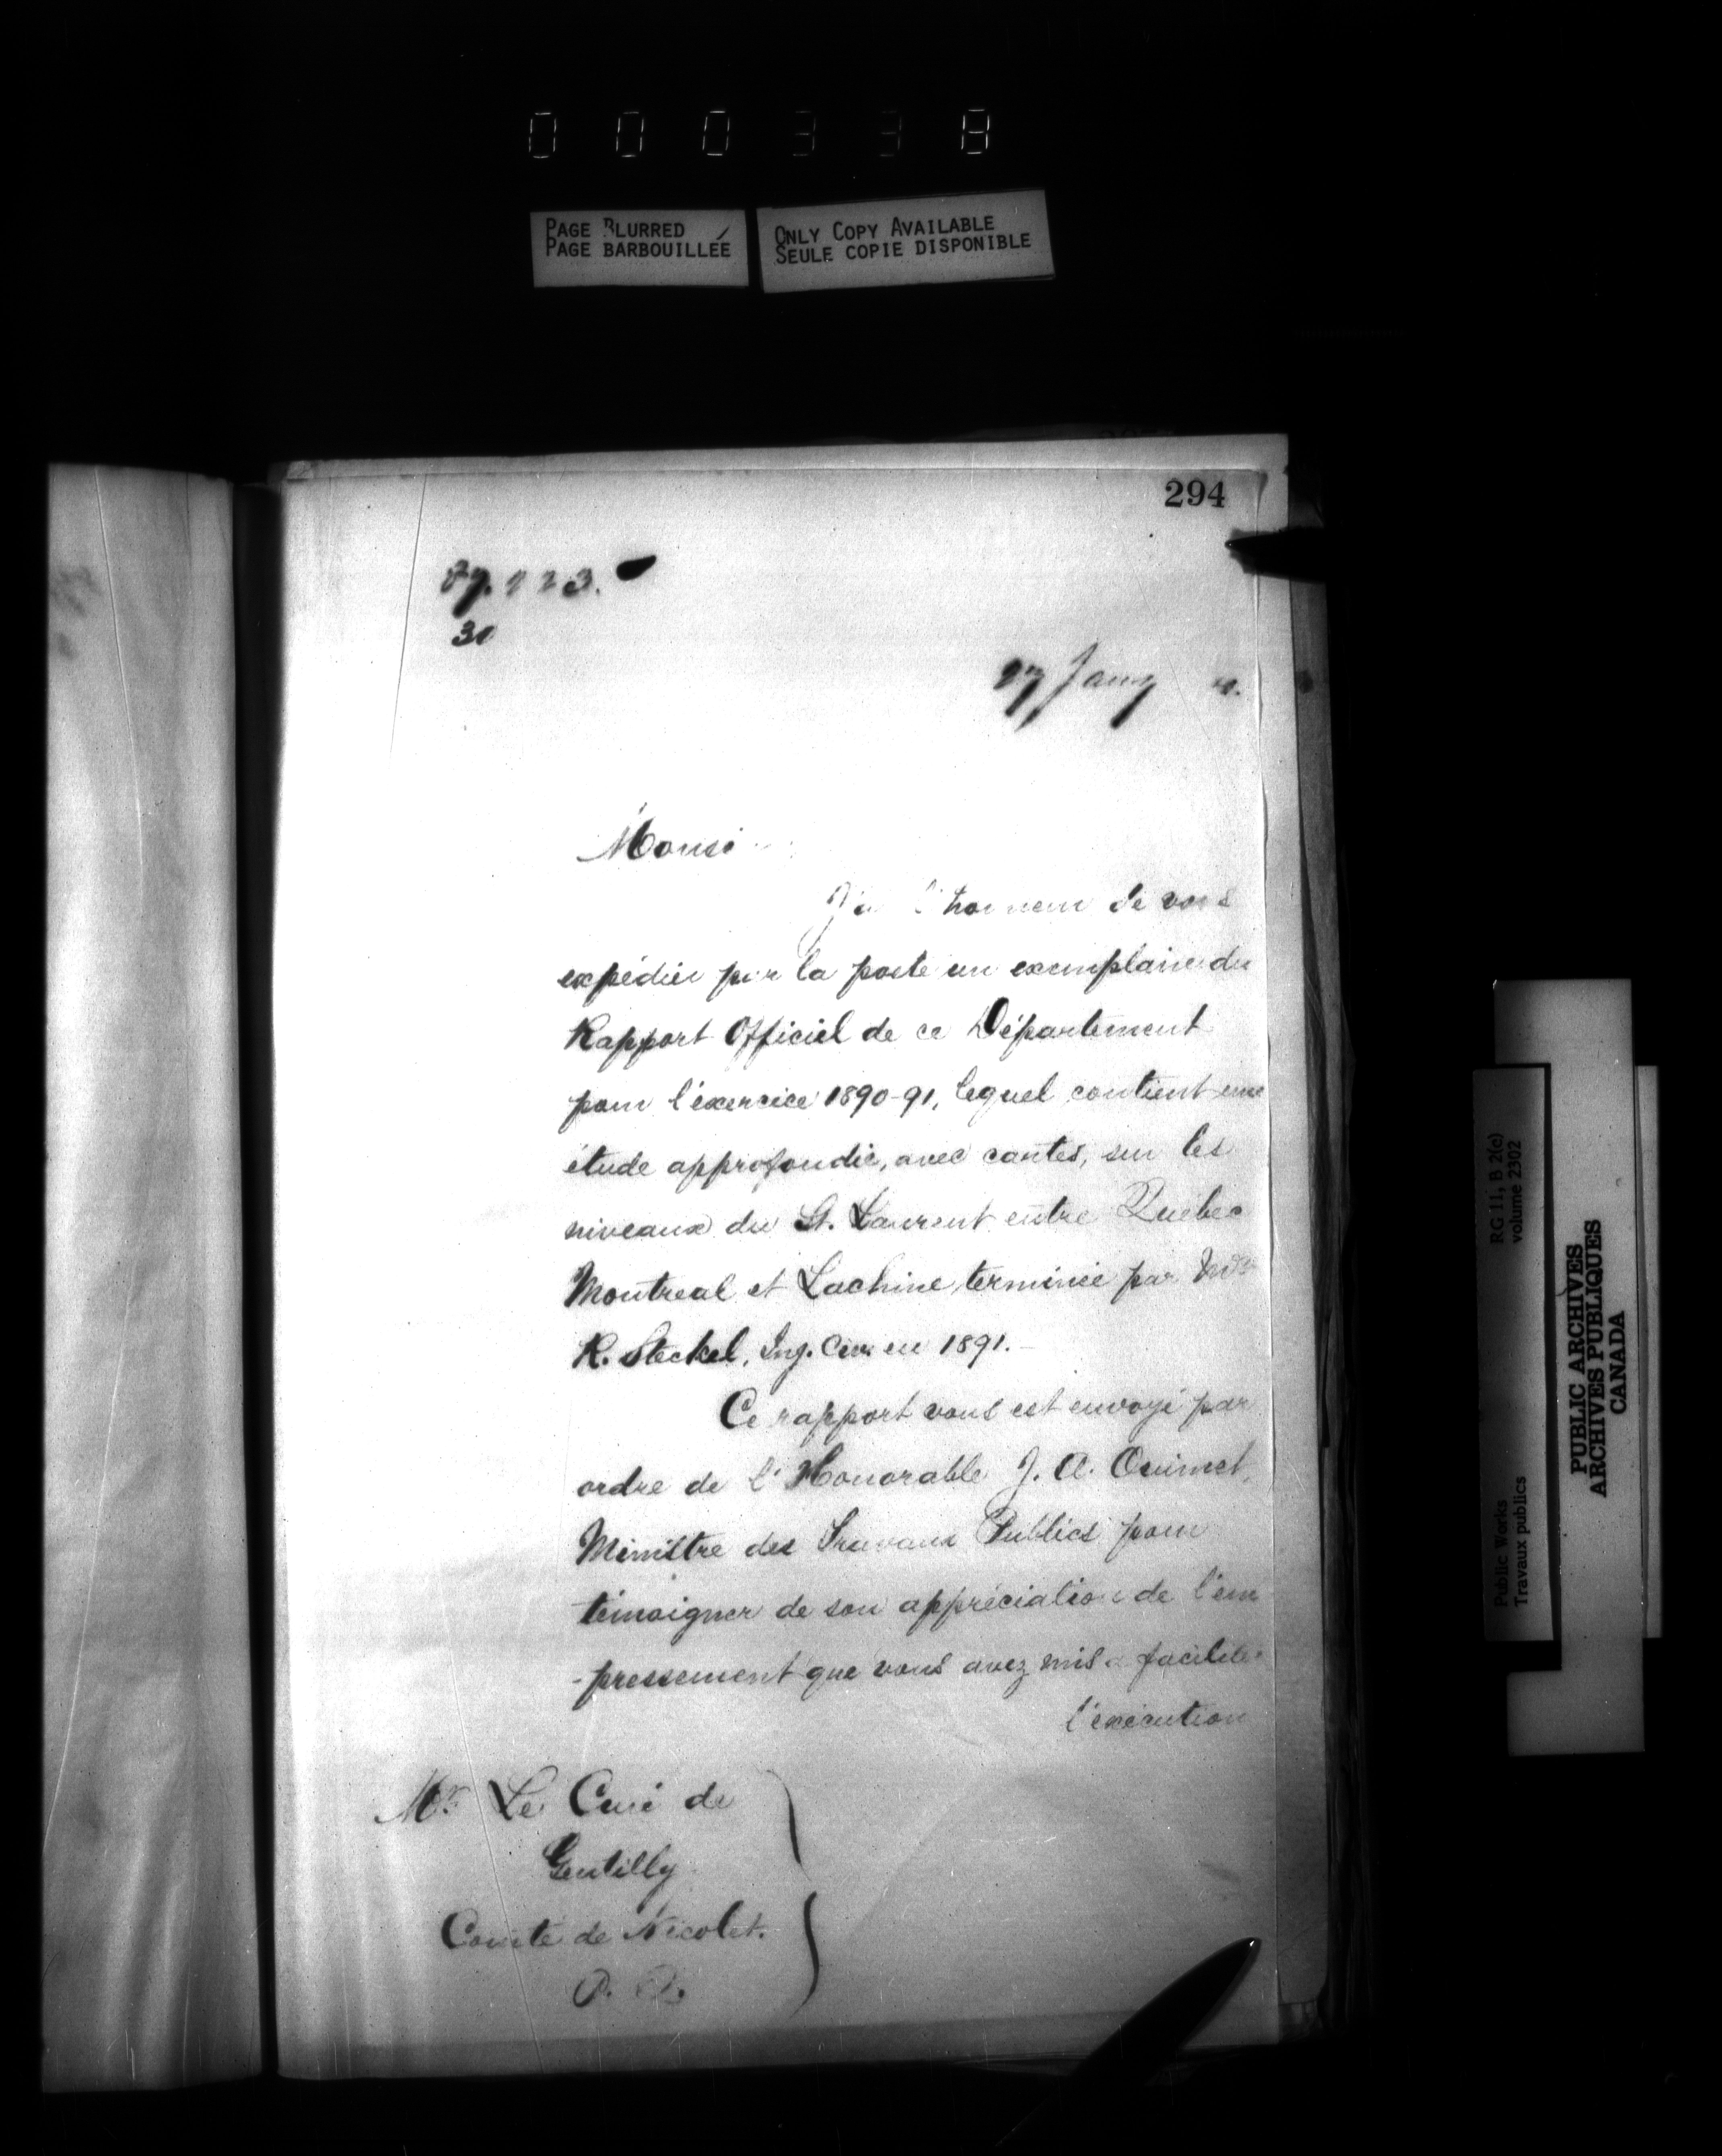 000338
PAGE BLURRED
PAGE BARBOUILLÉE
ONLY COPY AVAILABLE
SEULE COPIE DISPONIBLE
294
30
27 Jany
Monsi
J'ai l'honneur de vous
expédier par la poste un exemplaire du
Rapport Officiel de ce Département
pour l'éxercice 1890-91, lequel contient une
étude approfondie, avec cartes, sur les
niveaux du St. Laurent entre Québec
Montreal et Lachine, terminée par
R. Steckel, Ing. Civ. en 1891.-
Ce rapport vous est envoyé par
ordre de l'Honorable J. A. Ouimet,
Ministre des Travaux Publics pour
témoigner de son appréciation de l'em
-pressement que vous avez mis à faciliter
l'exécution
Mr. Le Curé de
Gentilly
Comté de Nicolet.
P. Q.
RG 11, B 2(c)
volume 2302
Public Works
Travaux publics
PUBLIC ARCHIVES
ARCHIVES PUBLIQUES
CANADA